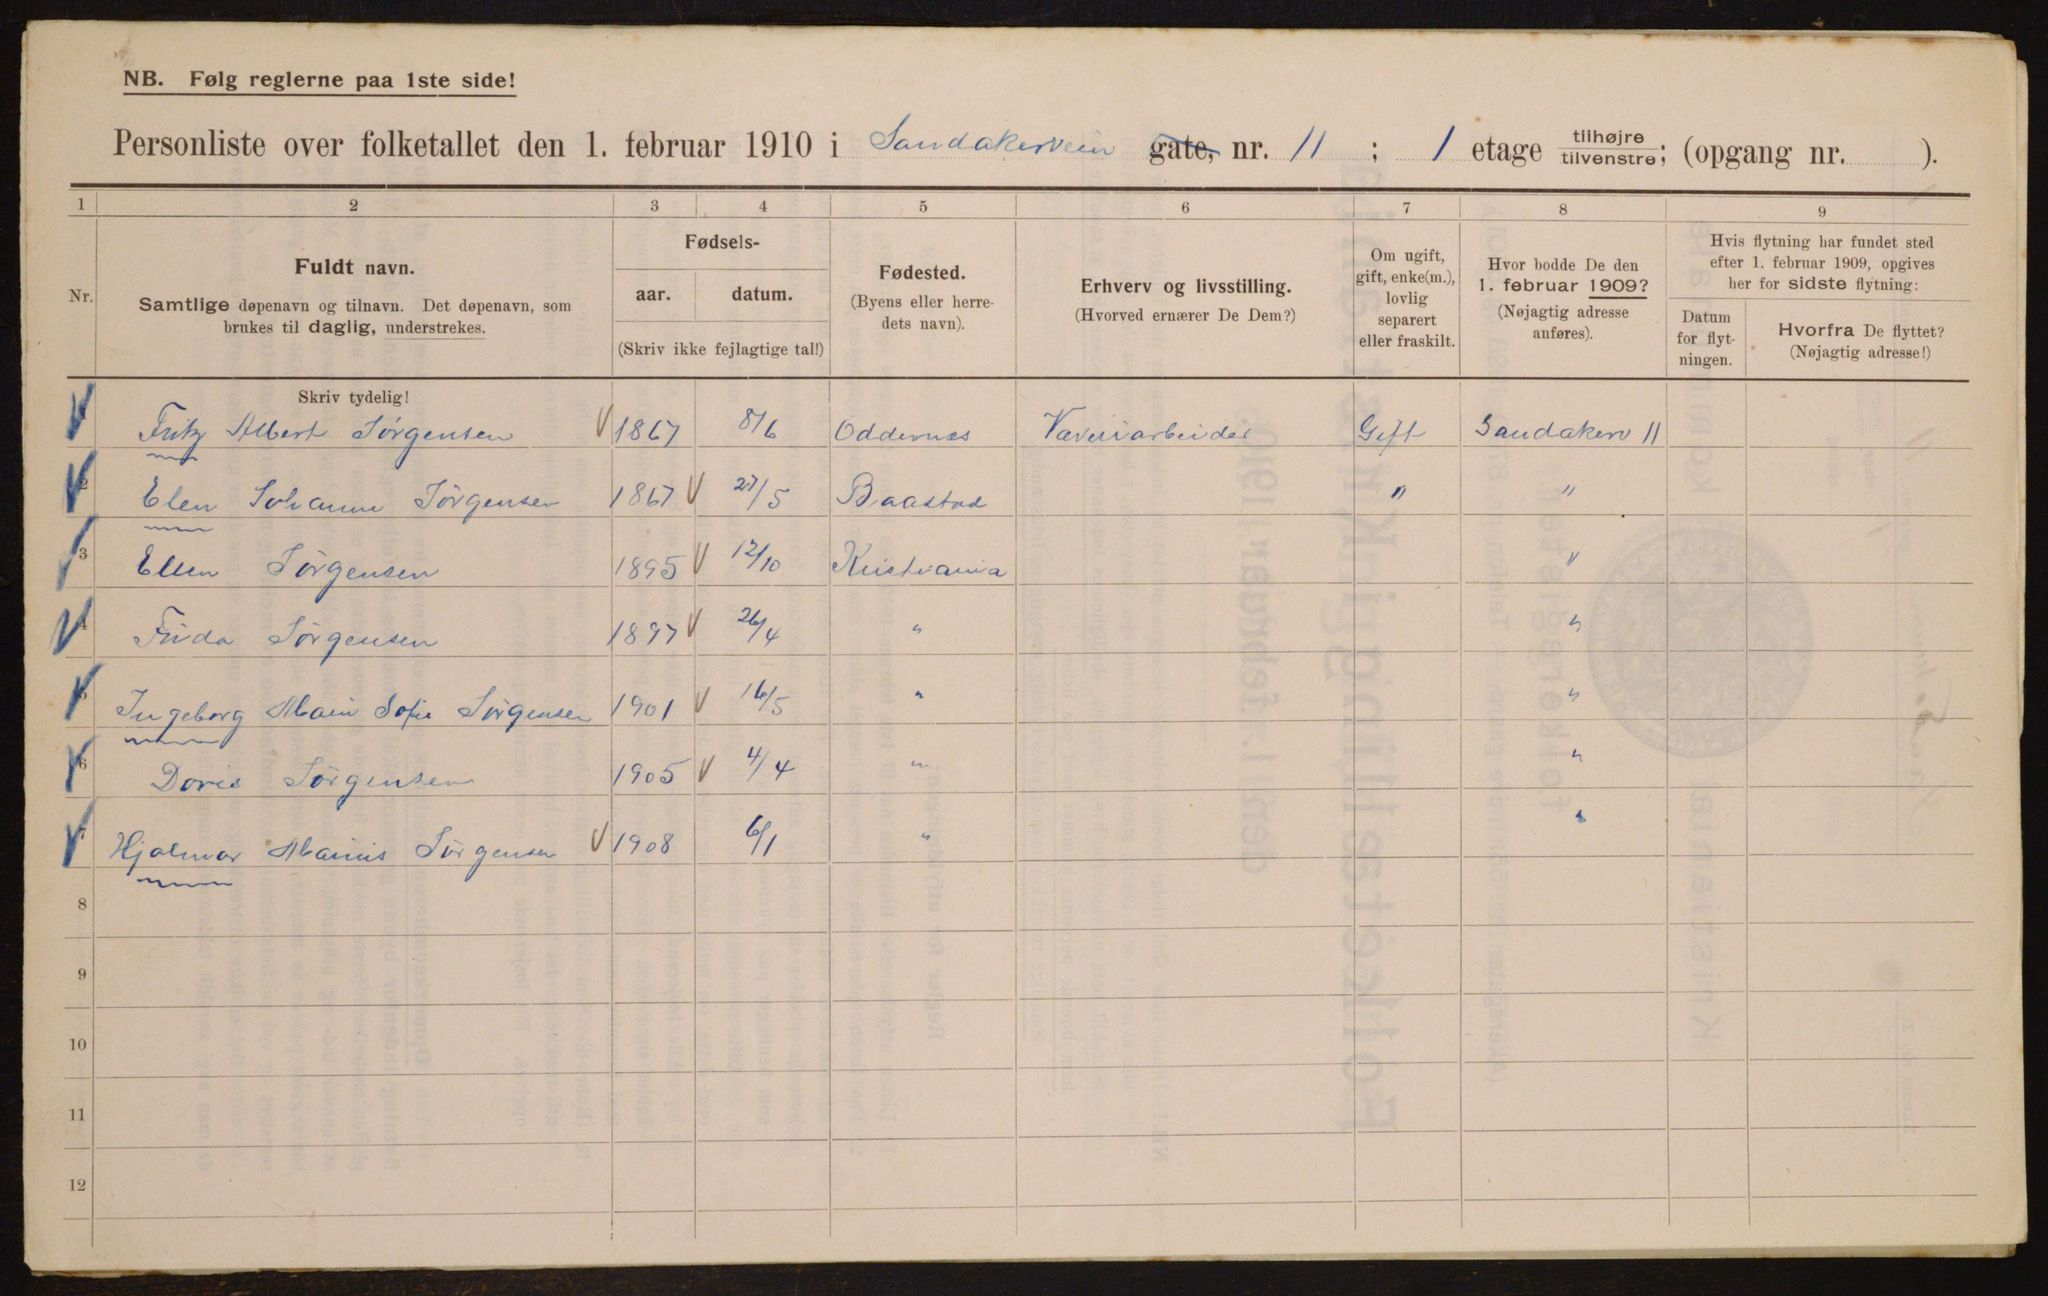 NB. Følg reglerne paa 1ste side!
Personliste over folketallet den 1. februar 1910 i Sandakerveien gate, nr. 11 ; 1 etage tilhøjre tilvenstre; (opgang nr. ).
1 2 3 4 5 6 7 8 9
Nr.
Fuldt navn.
Samtlige døpenavn og tilnavn. Det døpenavn, som
brukes til daglig, understrekes.
Fødsels-
aar. datum.
(Skriv ikke fejlagtige tal!)
Fødested.
(Byens eller herre-
dets navn).
Erhverv og livsstilling.
(Hvorved ernærer De Dem?)
Om ugift,
gift, enke(m.),
lovlig
separert
eller fraskilt.
Hvor bodde De den
1. februar 1909?
(Nøjagtig adresse
anføres).
Hvis flytning har fundet sted
efter 1. februar 1909, opgives
her for sidste flytning:
Datum
for flyt-
ningen.
Hvorfra De flyttet?
(Nøjagtig adresse!)
Skriv tydelig!
1 Fritz Albert Jørgensen 1867 8/6 Oddernæs Væveriarbeider Gift Sandakerv 11
2 Elen Johanne Jørgensen 1867 27/5 Baastad " "
3 Ellen Jørgensen 1895 12/10 Kristiania "
4 Frida Jørgensen 1897 26/4 " "
5 Ingeborg Marie Sofie Jørgensen 1901 16/5 " "
6 Doris Jørgensen 1905 4/4 " "
7 Hjalmar Marius Jørgensen 1908 6/1 " "
8
9
10
11
12